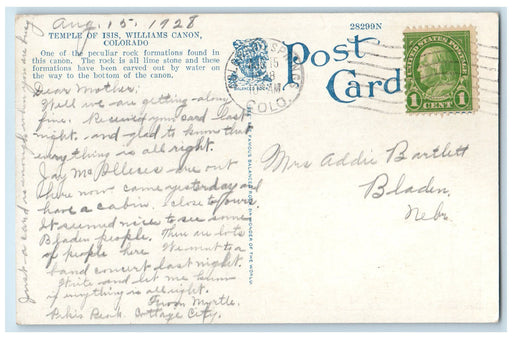 Aug. 15. 1928
TEMPLE OF ISIS, WILLIAMS CANON,
COLORADO
One of the peculiar rock formations found in
this canon. The rock is all lime stone and these
formations have been carved out by water on
the way to the bottom of the canon.
28299N
Post
Card
UNITED STATES POSTAGE
1 CENT 1
COLO.
Dear Mother:
Well we are getting along
fine. Received your card last
night. and glad to know that
everything is all right.
Jay are out
here now came yesterday and
have a cabin close to ours.
It seemed nice to see some
Bladen people. There are lots
of people here. We went to a
band concert last night.
Write and let me know
if everything is all right.
From Myrtle.
Pikes Peak. Cottage City.
Just a card is enough when you are busy
Mrs Addie Bartlett
Bladen,
Nebr.